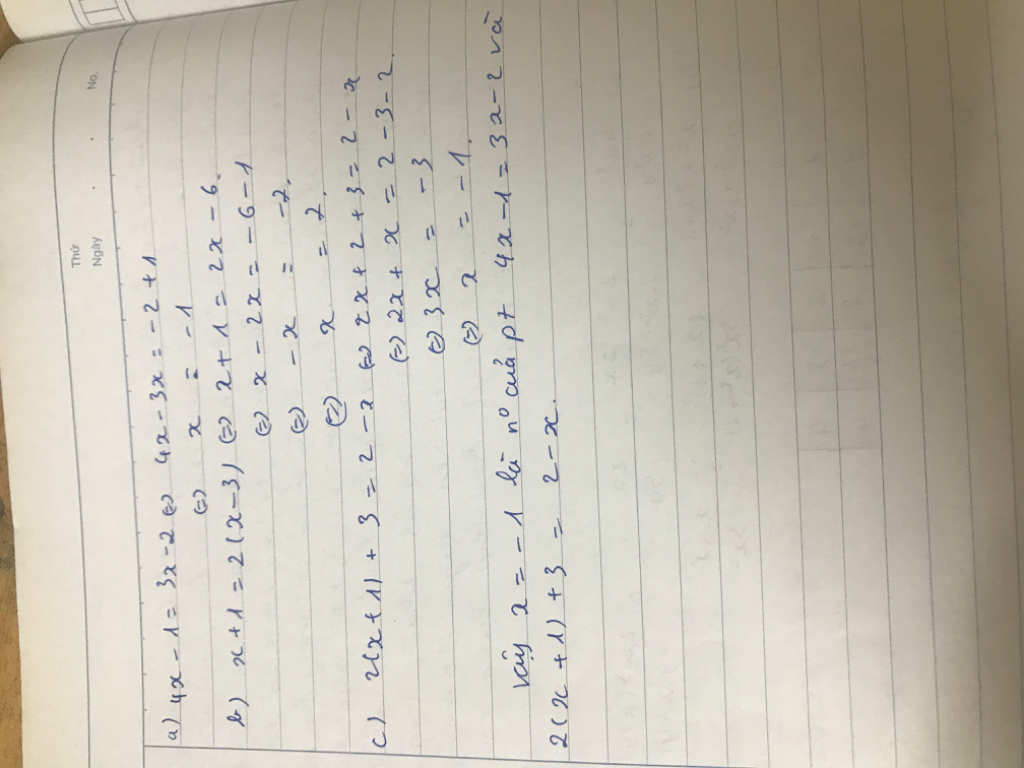 Thứ
Ngày
No.
a) 4x - 1 = 3x - 2 (=) 4x - 3x = -2 + 1
(=) x = -1
b) x + 1 = 2(x - 3) (=) x + 1 = 2x - 6.
(=) x - 2x = -6 - 1
(=) -x = -7.
(=) x = 7.
c) 2(x + 1) + 3 = 2 - x (=) 2x + 2 + 3 = 2 - x
(=) 2x + x = 2 - 3 - 2.
(=) 3x = -3
(=) x = -1.
Vậy x = -1 là nº của pt 4x - 1 = 3x - 2 và
2(x + 1) + 3 = 2 - x.